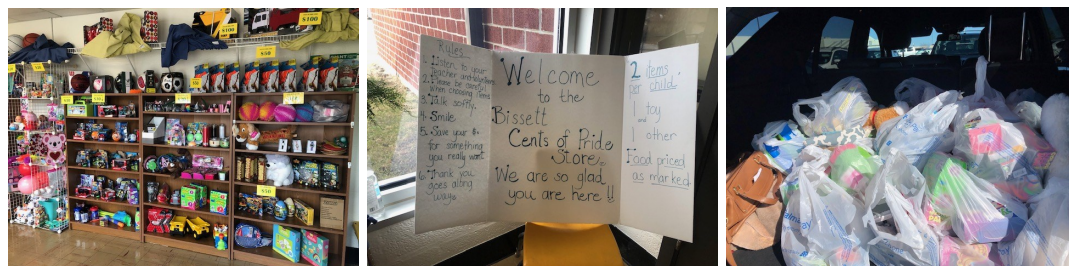 $100
$100
$50
Rules
1. Listen to your
teacher and
2. Please be careful
when choosing items
3. Talk softly.
4. Smile.
5. Save your $
for something
you really want
6. Thank you
goes along
way.
Welcome
to the
Bissett
Cents of Pride
Store.
We are so glad
you are here !!
2 items
per child.
1 toy
and
1 other
Food priced
as marked